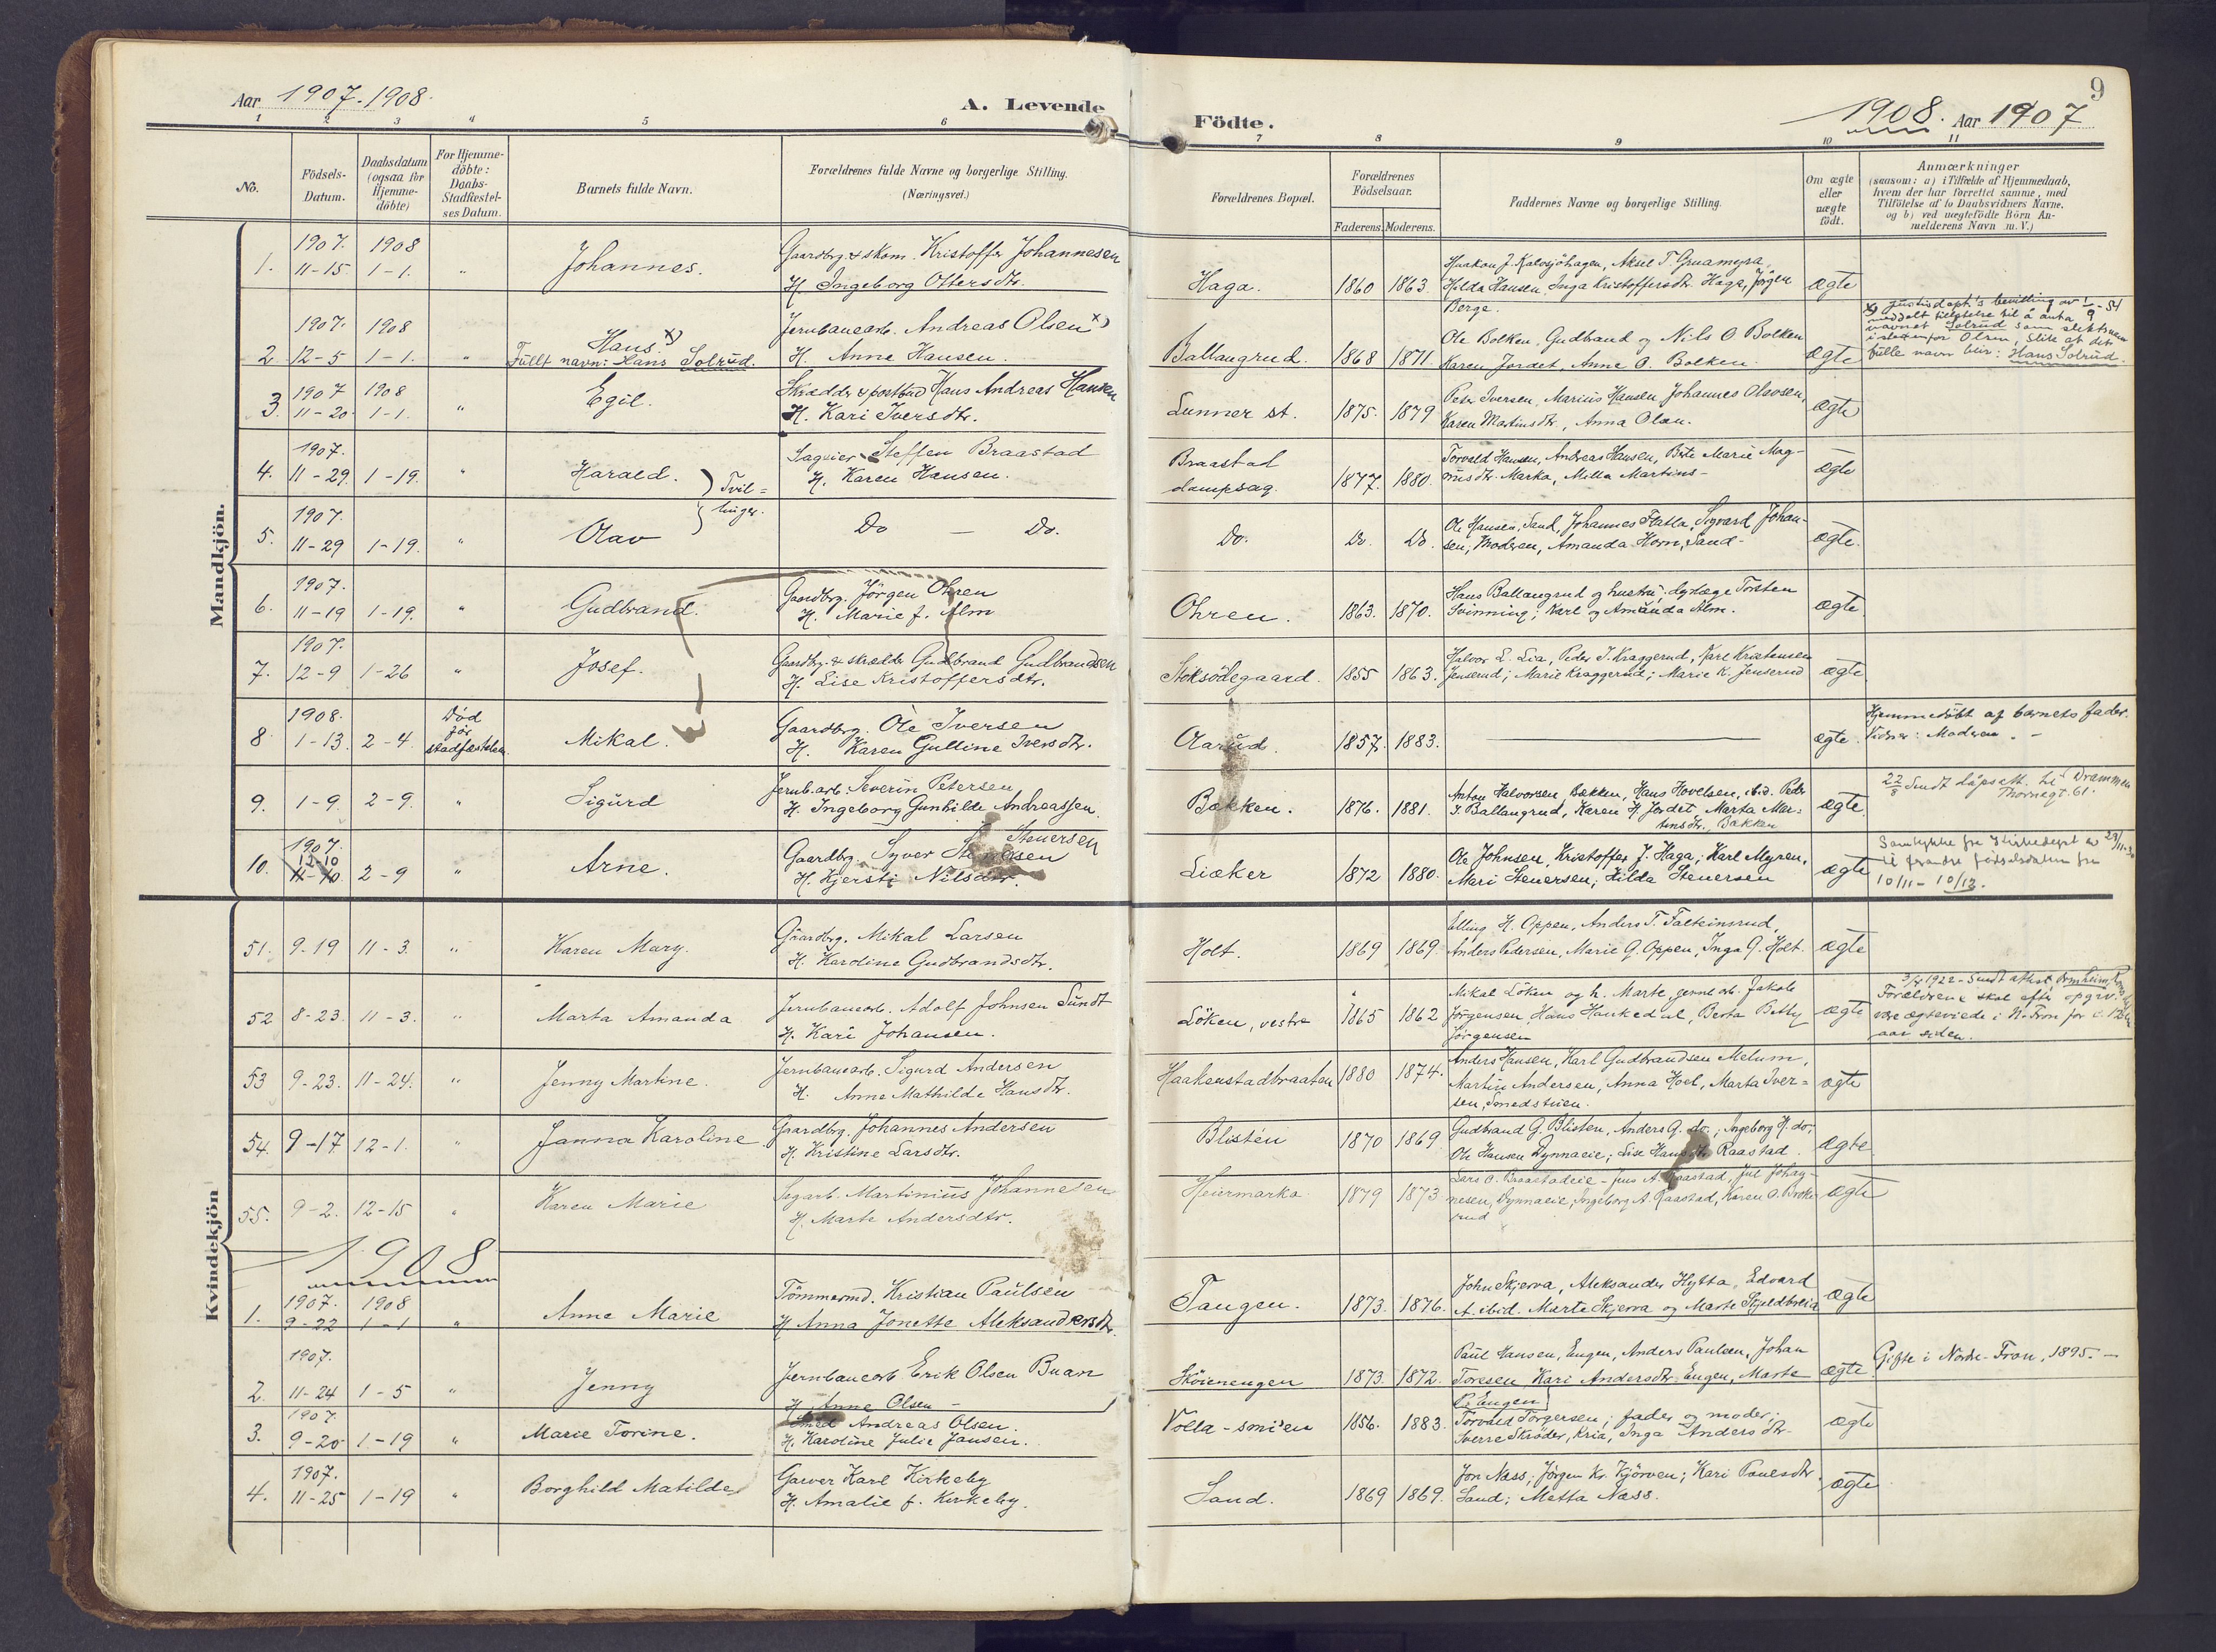 Aar 1907. 1908.
A. Levende
Födte.
1908. Aar 1907
9
1 2 3 4 5 6 7 8 9 10 11
No.
Födsels-Datum.
Daabsdatum (ogsaa for Hjemme-döbte)
For Hjemme-döbte: Daabs-Stadfæstel-ses Datum.
Barnets fulde Navn.
Forældrenes fulde Navne og borgerlige Stilling. (Næringsvei.)
Forældrenes Bopæl.
Forældrenes Födselsaar.
Faderens. Moderens.
Faddernes Navne og borgerlige Stilling.
Om ægte eller uægte födt.
Anmærkninger
(saasom: a) i Tilfælde af Hjemmedaab,
hvem der har forrettet samme, med
Tilföielse af to Daabsvidners Navne.
og b) ved uægtefödte Börn An-
melderens Navn m. V.)
Mandkjön.
1. 1907. 11-15. 1908 1-1. " Johannes. Gaardbrg. & skom. Kristoffer Johannesen
H. Ingeborg Ottersdtr. Haga. 1860 1863. Haakon J. Kalvsjöhagen, Aksel T. Gruamyra,
Hilda Hansen, Inga Kristoffersdtr. Haga, Jörgen
Berge. ægte
2. 1907. 12-5 1908 1-1. " Hans. x)
Fullt navn: Hans Solrud. Jernbanearb. Andreas Olsen x)
H. Anne Hansen. Ballangrud. 1868 1871. Ole Bolken, Gudbrand og Nils O. Bolken
Karen Jordet, Anne O. Bolken. ægte
x) Justisdept's bevilling av 1/9-54
meddelt tillatelse til å anta
navnet Solrud som slektsnavn
istedenfor Olsen, slik at det
fulle navn blir: Hans Solrud.
3. 1907 11-20 1908 1-1. " Egil. Skrædder & postbud Hans Andreas Hansen
H. Kari Iversdtr. Lunner st. 1875. 1879 Peter Iversen, Marius Hansen, Johannes Olavsen,
Karen Martinsdtr., Anna Olsen. ægte
4. 1907. 11-29. 1-19. " Harald. } Tvil=
linger. Sageier Steffen Braastad
H. Karen Hansen. Braastad
dampsag. 1877. 1880. Torvald Hansen, Andreas Hansen, Berte Marie Mag-
nusdtr. Marka, Milla Martins- ægte
5. 1907. 11-29 1-19. " Olav Do — Do. Do. Do. Do. Ole Hansen, Sand, Johannes Flatla, Sigvard Johan-
sen, Moderen, Amanda Horn, Sand- ægte.
6. 1907. 11-19 1-19. " Gudbrand. Gaardbrg. Jörgen Ohren
H. Marie f. Alm Ohren. 1863. 1870. Hans Ballangrud og hustru; dyrlæge Torsten
Svinning; Karl og Amanda Alm. ægte
7. 1907. 12-9 1-26 " Josef. Gaardbrg. & skrædder Gudbrand Gudbrandsen
H. Lise Kristoffersdtr. Stoksödegaard. 1855 1863. Halvor L. Lia, Peder J. Kraggerud, Karl Kristensen
Jenserud; Marie Kraggerud; Marie K. Jenserud ægte
8 1908. 1-13. 2-4. Död
för
stadfæstelsen Mikal. Gaardbrg. Ole Iversen
H. Karen Gulline Iversdtr. Aarud. 1857. 1883. ——— ægte. Hjemmedöbt af barnets fader.
Vidner: Moderen. -
9. 1-9. 2-9. " Sigurd Jernb.arb. Severin Petersen
H. Ingeborg Gunhilde Andreassen. Bækken. 1876. 1881. Anton Halvorsen, Bækken, Hans Hovelsen, ibid. Peder
J. Ballangrud, Karen H. Jordet, Marta Mar-
tinsdtr., Bækken ægte. 22/8 Sendt dåpsatt. til Drammen
Thornegt. 61.
10. 1907. 12-10 11-10. 2-9 " Arne. Gaardbrg. Syver Stenersen
H. Kjersti Nilsdtr. Lieker 1872 1880. Ole Johnsen, Kristoffer J. Haga; Karl Myren,
Mari Stenersen; Hilda Stenersen ægte Samtykke fra Kirkedept av 29/11-30
til forandre fødselsdatum fra
10/11 - 10/12.
Kvindekjön
51. 9-19 11-3. " Karen Mary. Gaardbrg. Mikal Larsen
H. Karoline Gudbrandsdtr. Holt. 1869 1869. Elling H. Oppen, Anders T. Falteinsrud,
Anders Pedersen, Marie G. Oppen, Inga G. Holt. ægte
52 8-23. 11-3. " Marta Amanda Jernbanearb. Adolf Johnsen Sundt
H. Kari Johansen. Löken, vestre 1865 1862 Mikal Löken og h. Marte, jernb.arb. Jakob
Jörgensen, Hans Haukedal, Berta Betty
Jörgensen ægte 3/4 1922 - Sendt attest,
Forældrene skal efter opgiv.
være ægteviede i N-Fron for c. 12
aar siden.
53 9-23. 11-24. " Jenny Martine. Jernbanearb. Sigurd Andersen
H. Anne Mathilde Hansdtr. Haakenstadbraaten 1880 1874. Anders Hansen, Karl Gudbrandsen Melum,
Martin Andersen, Anna Hoel, Marta Iver=
sen, Smedstuen. ægte
54. 9-17 12-1. " Janna Karoline Gaardbrg. Johannes Andersen
H. Kristine Larsdtr. Blistén 1870 1869 Gudbrand G. Blisten, Anders G. do.; Ingeborg H. do;
Ole Hansen Dynnaeie; Lise Hansdtr. Raastad. ægte
55. 9-2. 12-15 " Karen Marie Sagarb. Martinius Johannesen
H. Marte Andersdtr. Heiermarka 1879 1873 Lars O. Braastadeie - Jens A. Raastad, Jul Johan-
nesen, Dynnaeie, Ingeborg A. Raastad, Karen O. Broke-
rud ægte
1908
1. 1907. 9-22 1908 1-1 " Anne Marie Tömmermd. Kristian Paulsen
H. Anna Jonette Aleksandersdtr. Tangen. 1873. 1876. John Skjerva, Aleksander Hytta, Edvard
A. ibid. Marte Skjerva og Marte Skjeldbreia ægte
2. 1907. 11-24 1-5 " Jenny Jernbanearb Erik Olsen Buan
H Anne Olsen - Skoienengen 1873. 1872. Paul Hansen, Eugen, Anders Paulsen, Johan
Toresen, Kari Andersdtr. Eugen, Marte
P. Eugen ægte Gifte i Nordre-Fron, 1895. -
3. 1907. 9-20 1-19 " Marie Torine. Smed Andreas Olsen.
H. Karoline Julie Jansen. Volla-smien 1856. 1883. Torvald Torgersen; fader og moder;
Sverre Ströder, Kria, Inga Andersdtr. ægte
4. 1907. 11-25 1-19 " Borghild Matilde Garver Karl Kirkeby
H. Amalie f. Kirkeby. Sand. 1869 1869. Jon Næss; Jörgen Kr. Kjörven; Kari Paulsdtr.
Sand; Metta Næss. ægte